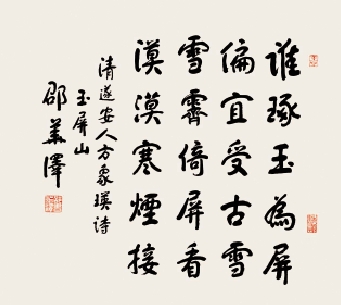 谁琢玉为屏
偏宜受古雪
雪霽倚屏看
漠漠寒煙接
清遂安人方象瑛诗
玉屏山
邵華澤